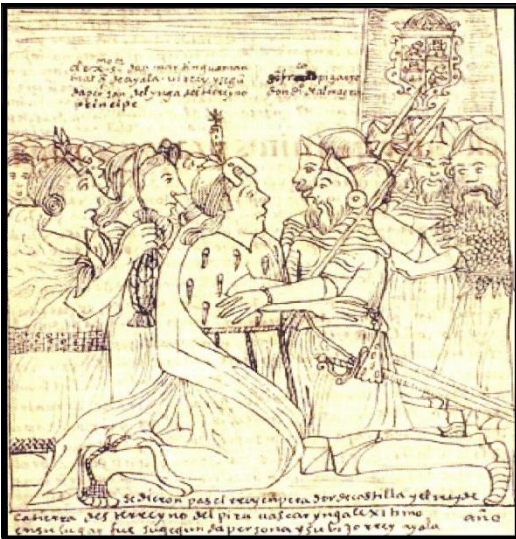 don martin guaman
mal q de ayala. uirrey y segũ
da per son del ynga deste reyno
principe
pizarro
don di^o de almagro
se dieron pas el rrey enperador de castilla y el rrey de
la tierra des te rreyno del piru uascar ynga lexitimo
en su lugar fue su segun da persona y su bi zorrey ayala
año